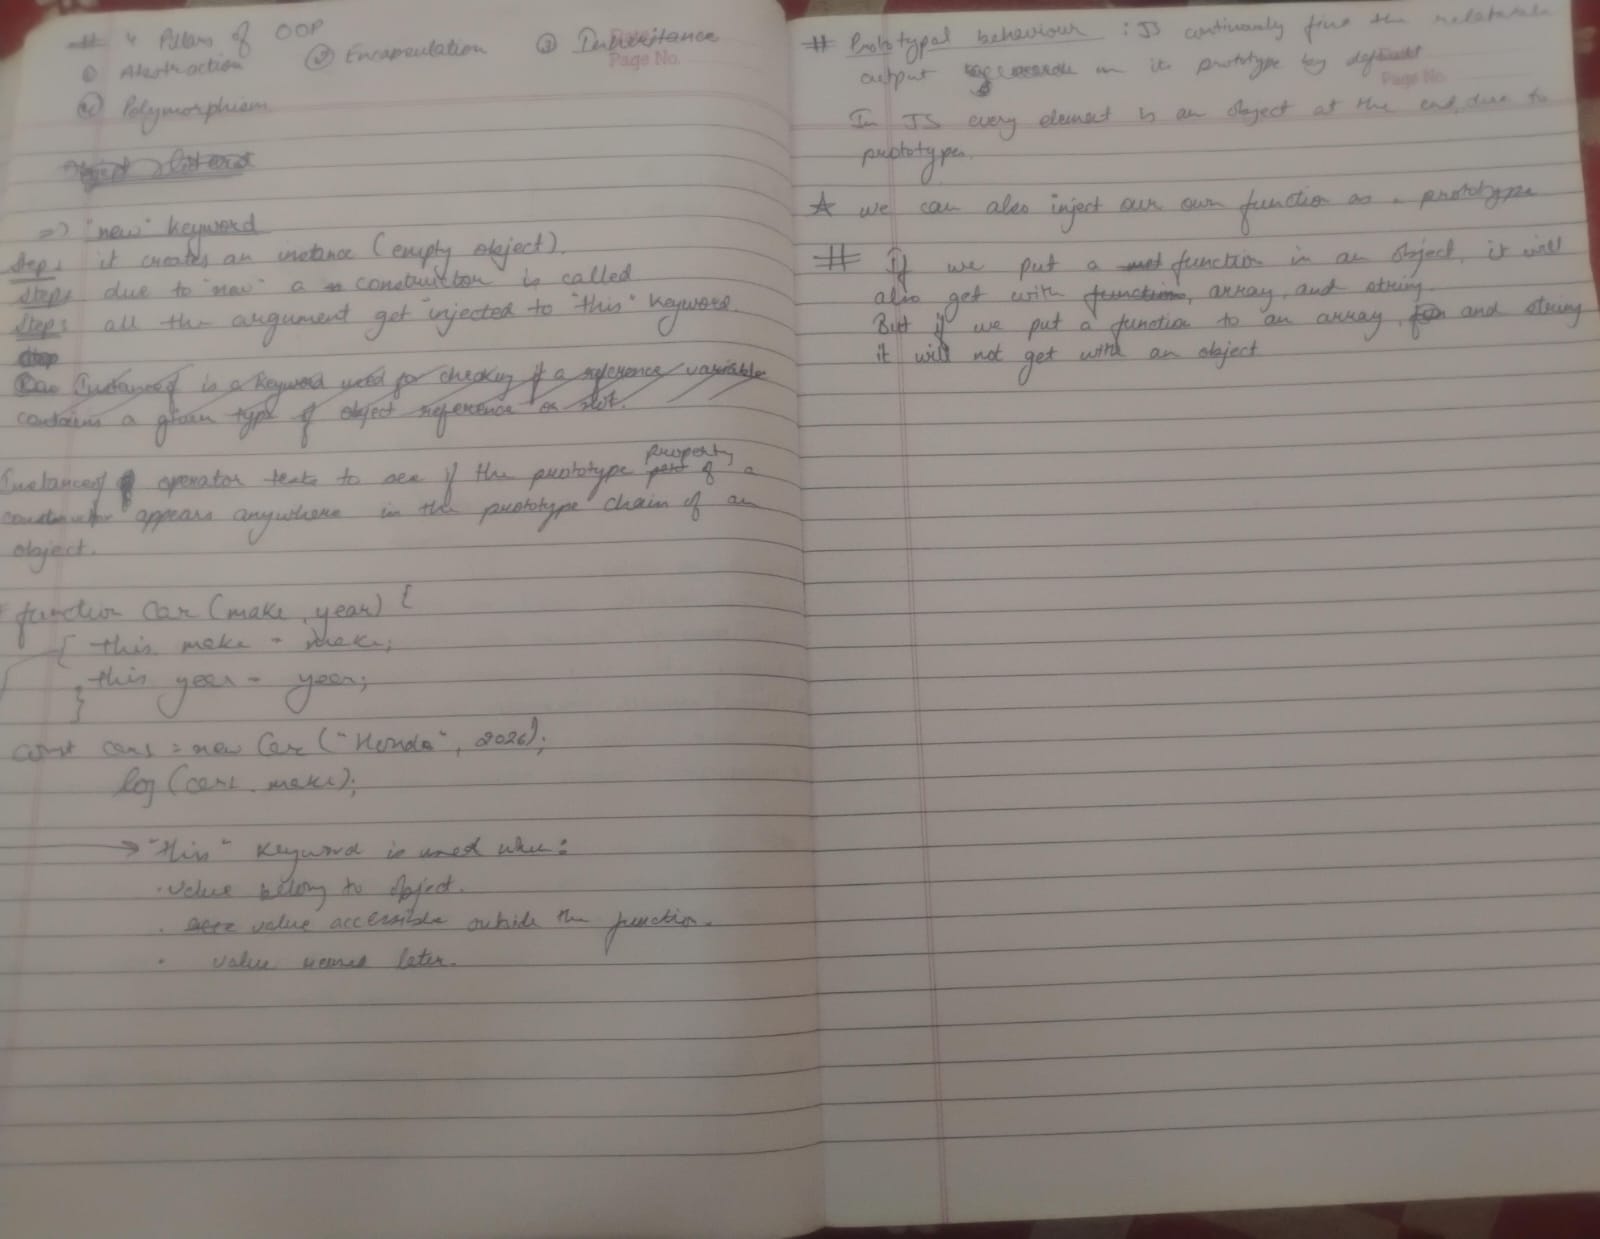 # 4 Pillars of OOP
① Abstraction ② Encapsulation ③ Inheritance
Page No.
④ Polymorphism
=> "new" keyword
Step1 it creates an instance (empty object).
Step2 due to "new" a constructor is called
Step3 all the argument get injected to "this" keyword.
Instanceof is a keyword used for checking if a reference variable
contains a given type of object reference or not.
Instanceof operator tests to see if the prototype property of a
constructor appears anywhere in the prototype chain of an
object.
function Car (make, year) {
{ this make = make;
this year = year;
}
const car1 = new Car ("Honda", 2026);
log (car1.make);
→ "this" keyword is used when:
· value belong to object.
· value accessible outside the function.
· value needed later.
# Prototypal behaviour : JS continously find the
output in its prototype by default
Page No.
In JS every element is an object at the end, due to
prototypes.
☆ we can also inject our own function as a prototype
# If we put a function in an object, it will
also get with function, array, and string.
But if we put a function to an array, and string
it will not get with an object